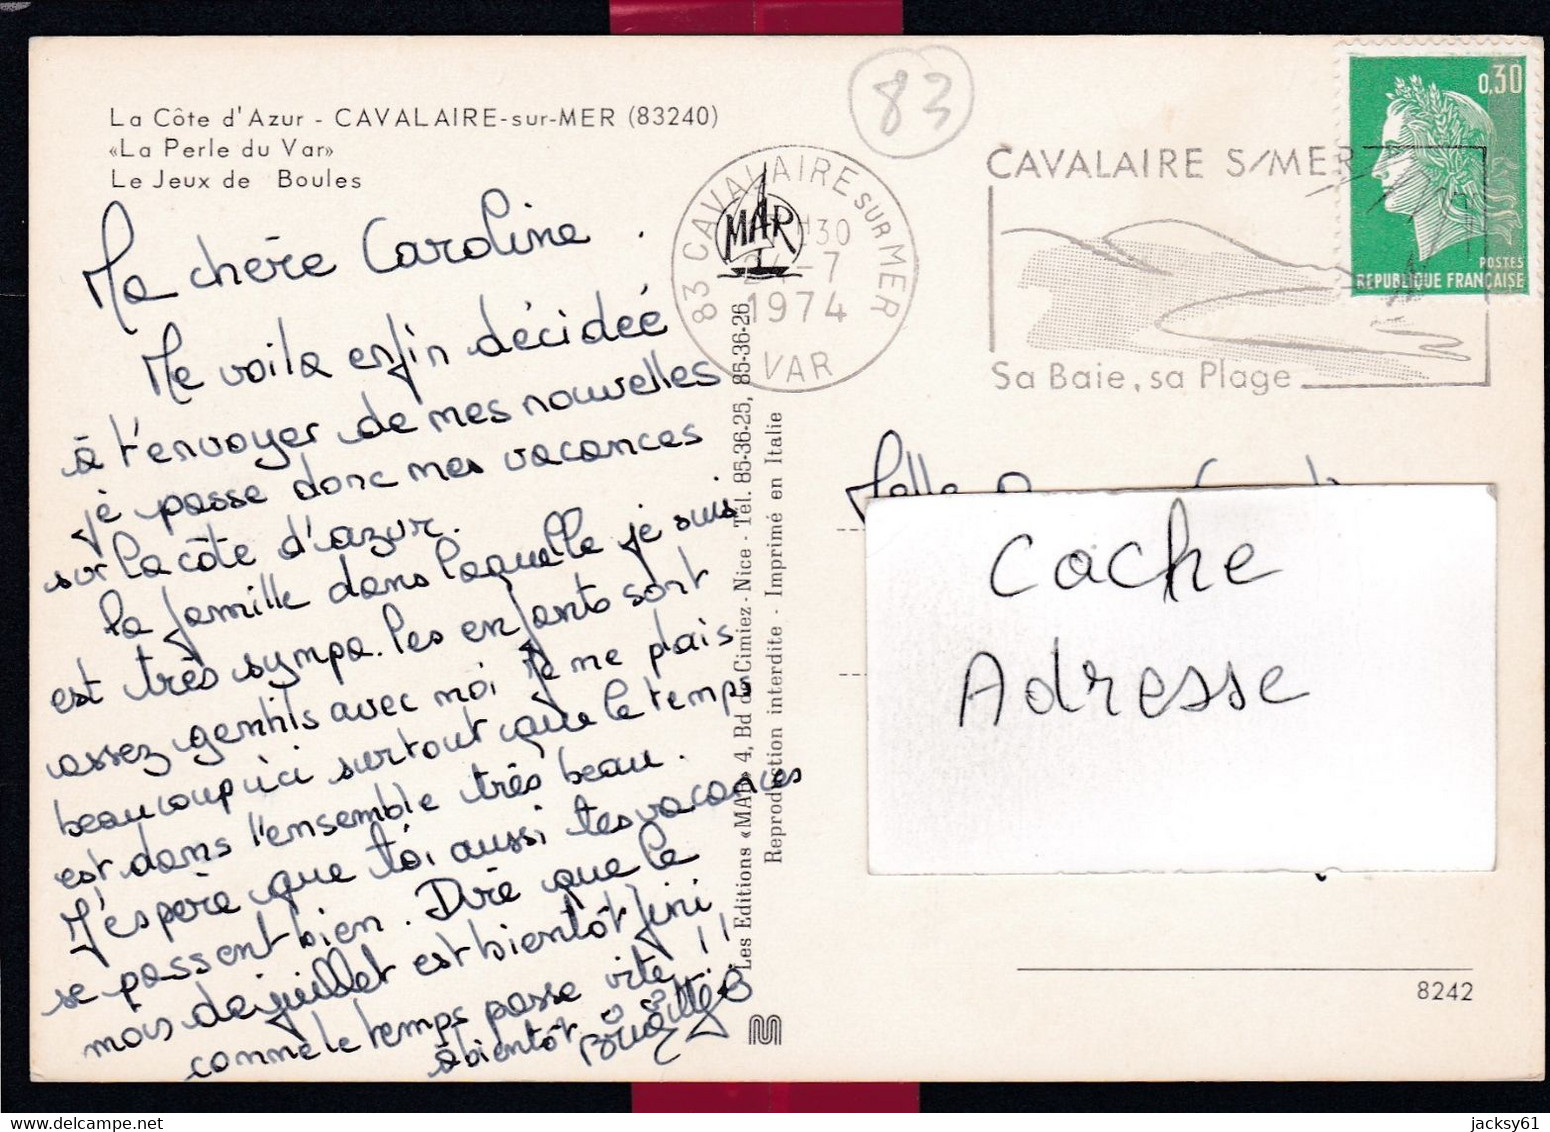 La Côte d'Azur - CAVALAIRE-sur-MER (83240)
«La Perle du Var»
Le Jeux de Boules
83
83 CAVALAIRE SUR MER
H30
24-7
1974
VAR
MAR
CAVALAIRE S/MER
Sa Baie, sa Plage
0,30
POSTES
REPUBLIQUE FRANÇAISE
Ma chère Caroline.
Me voila enfin décidée
à t'envoyer de mes nouvelles
je passe donc mes vacances
sur la côte d'azur.
la famille dans laquelle je suis
est très sympa. les enfants sont
assez gentils avec moi je me plais
beaucoup ici surtout que le temps
est dans l'ensemble très beau.
J'espère que toi aussi tes vacances
se passent bien. Dire que le
mois de juillet est bientôt fini
comme le temps passe vite!!
à bientôt.
Les Editions «MAR» 4, Bd de Cimiez - Nice - Tél. 85-36-25, 85-36-26
Reproduction interdite - Imprimé en Italie
Melle
Cache
Adresse
8242
jacksy61